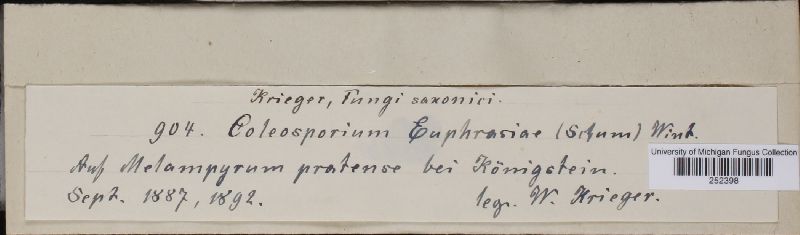 Krieger, Fungi saxonici.
904. Coleosporium Euphrasiae (Schum) Wint.
Auf Melampyrum pratense bei Königstein.
Sept. 1887, 1892. leg. W. Krieger.
University of Michigan Fungus Collection
252398